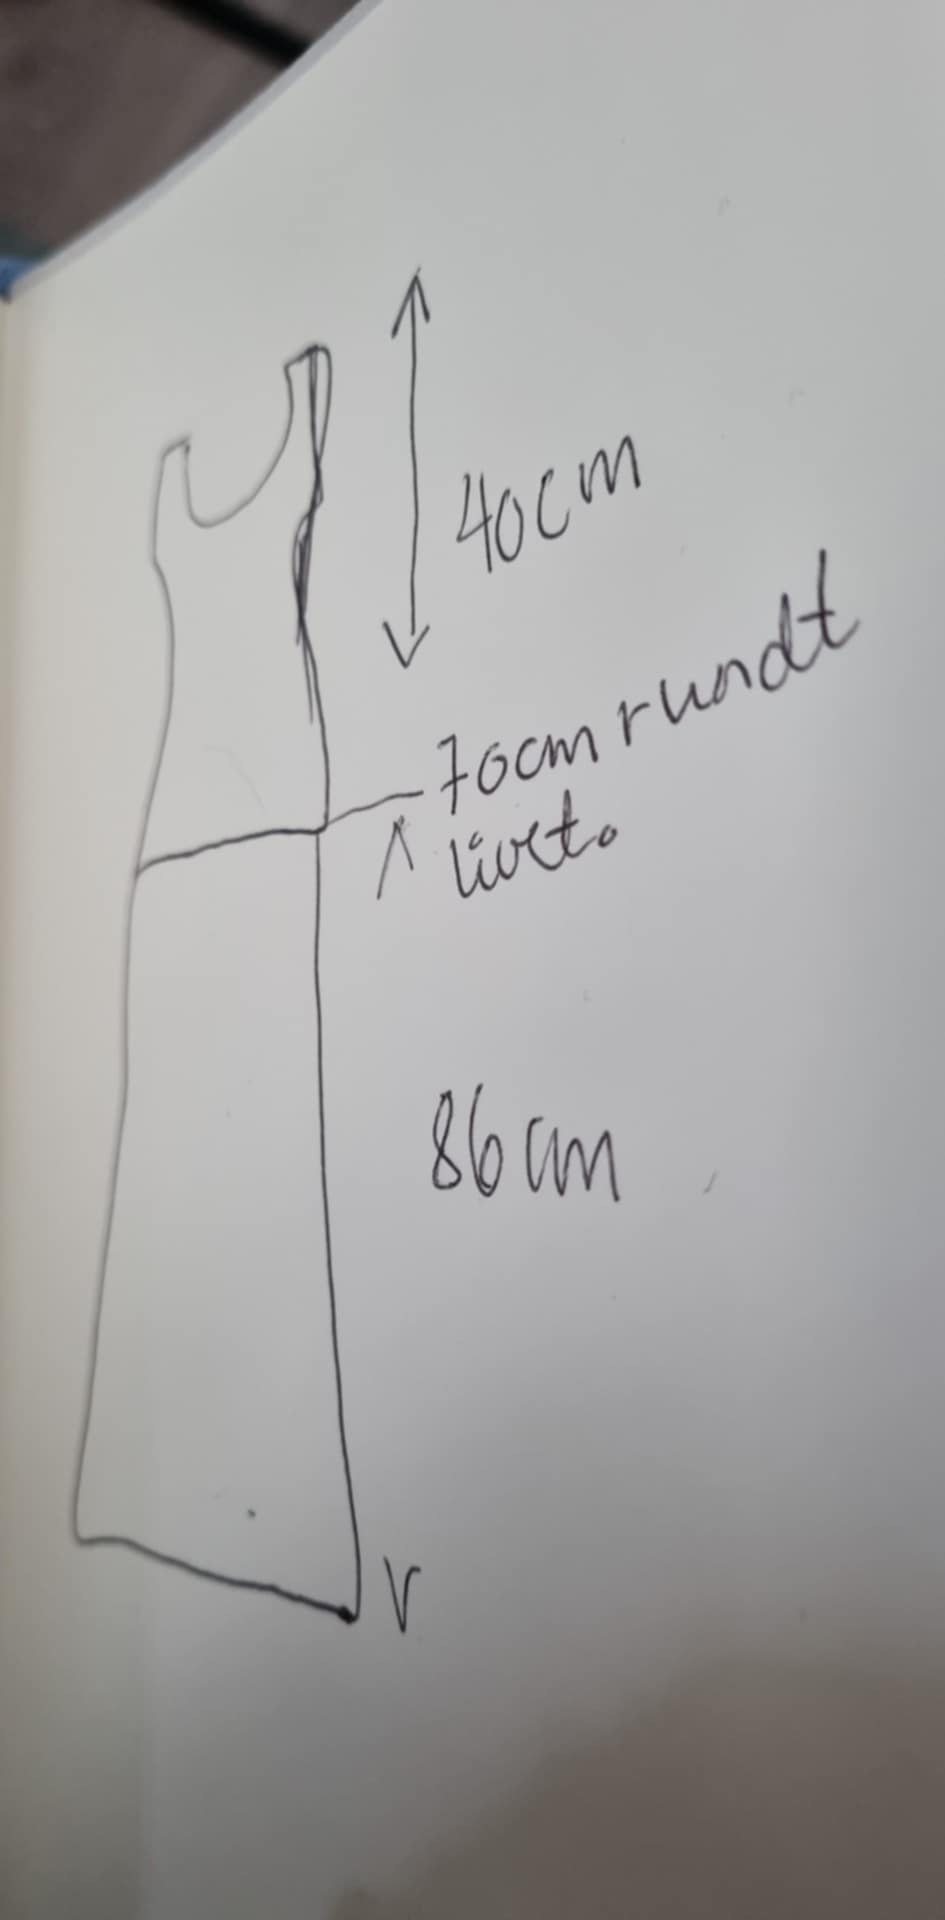 40cm
70cm rundt
livet.
86cm